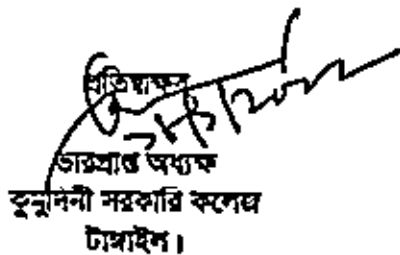 প্রতিস্বাক্ষর
ভারপ্রাপ্ত অধ্যক্ষ
কুমুদিনী সরকারি কলেজ
টাঙ্গাইল।